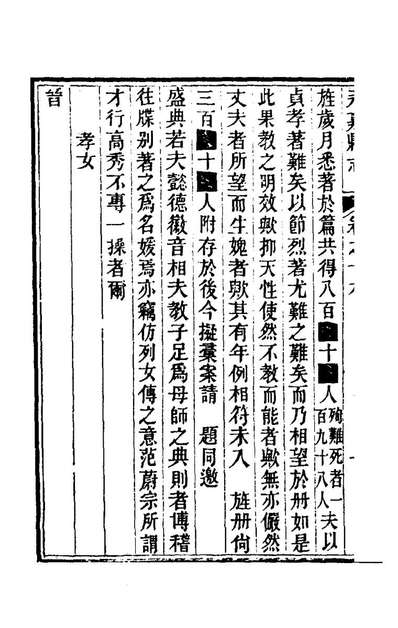 旌歲月悉著於篇共得八百十人殉難死者一百九十八人夫以
貞孝著難矣以節烈著尤難之難矣而乃相望於册如是
此果教之明效歟抑天性使然不教而能者歟無亦儼然
丈夫者所望而生媿者歟其有年例相符未入　旌册尙
三百十人附存於後今擬彙案請　題同邀
盛典若夫懿德徽音相夫教子足爲母師之典則者博稽
往牒别著之爲名媛焉亦竊仿列女傳之意范蔚宗所謂
才行高秀不專一操者爾
孝女
晉